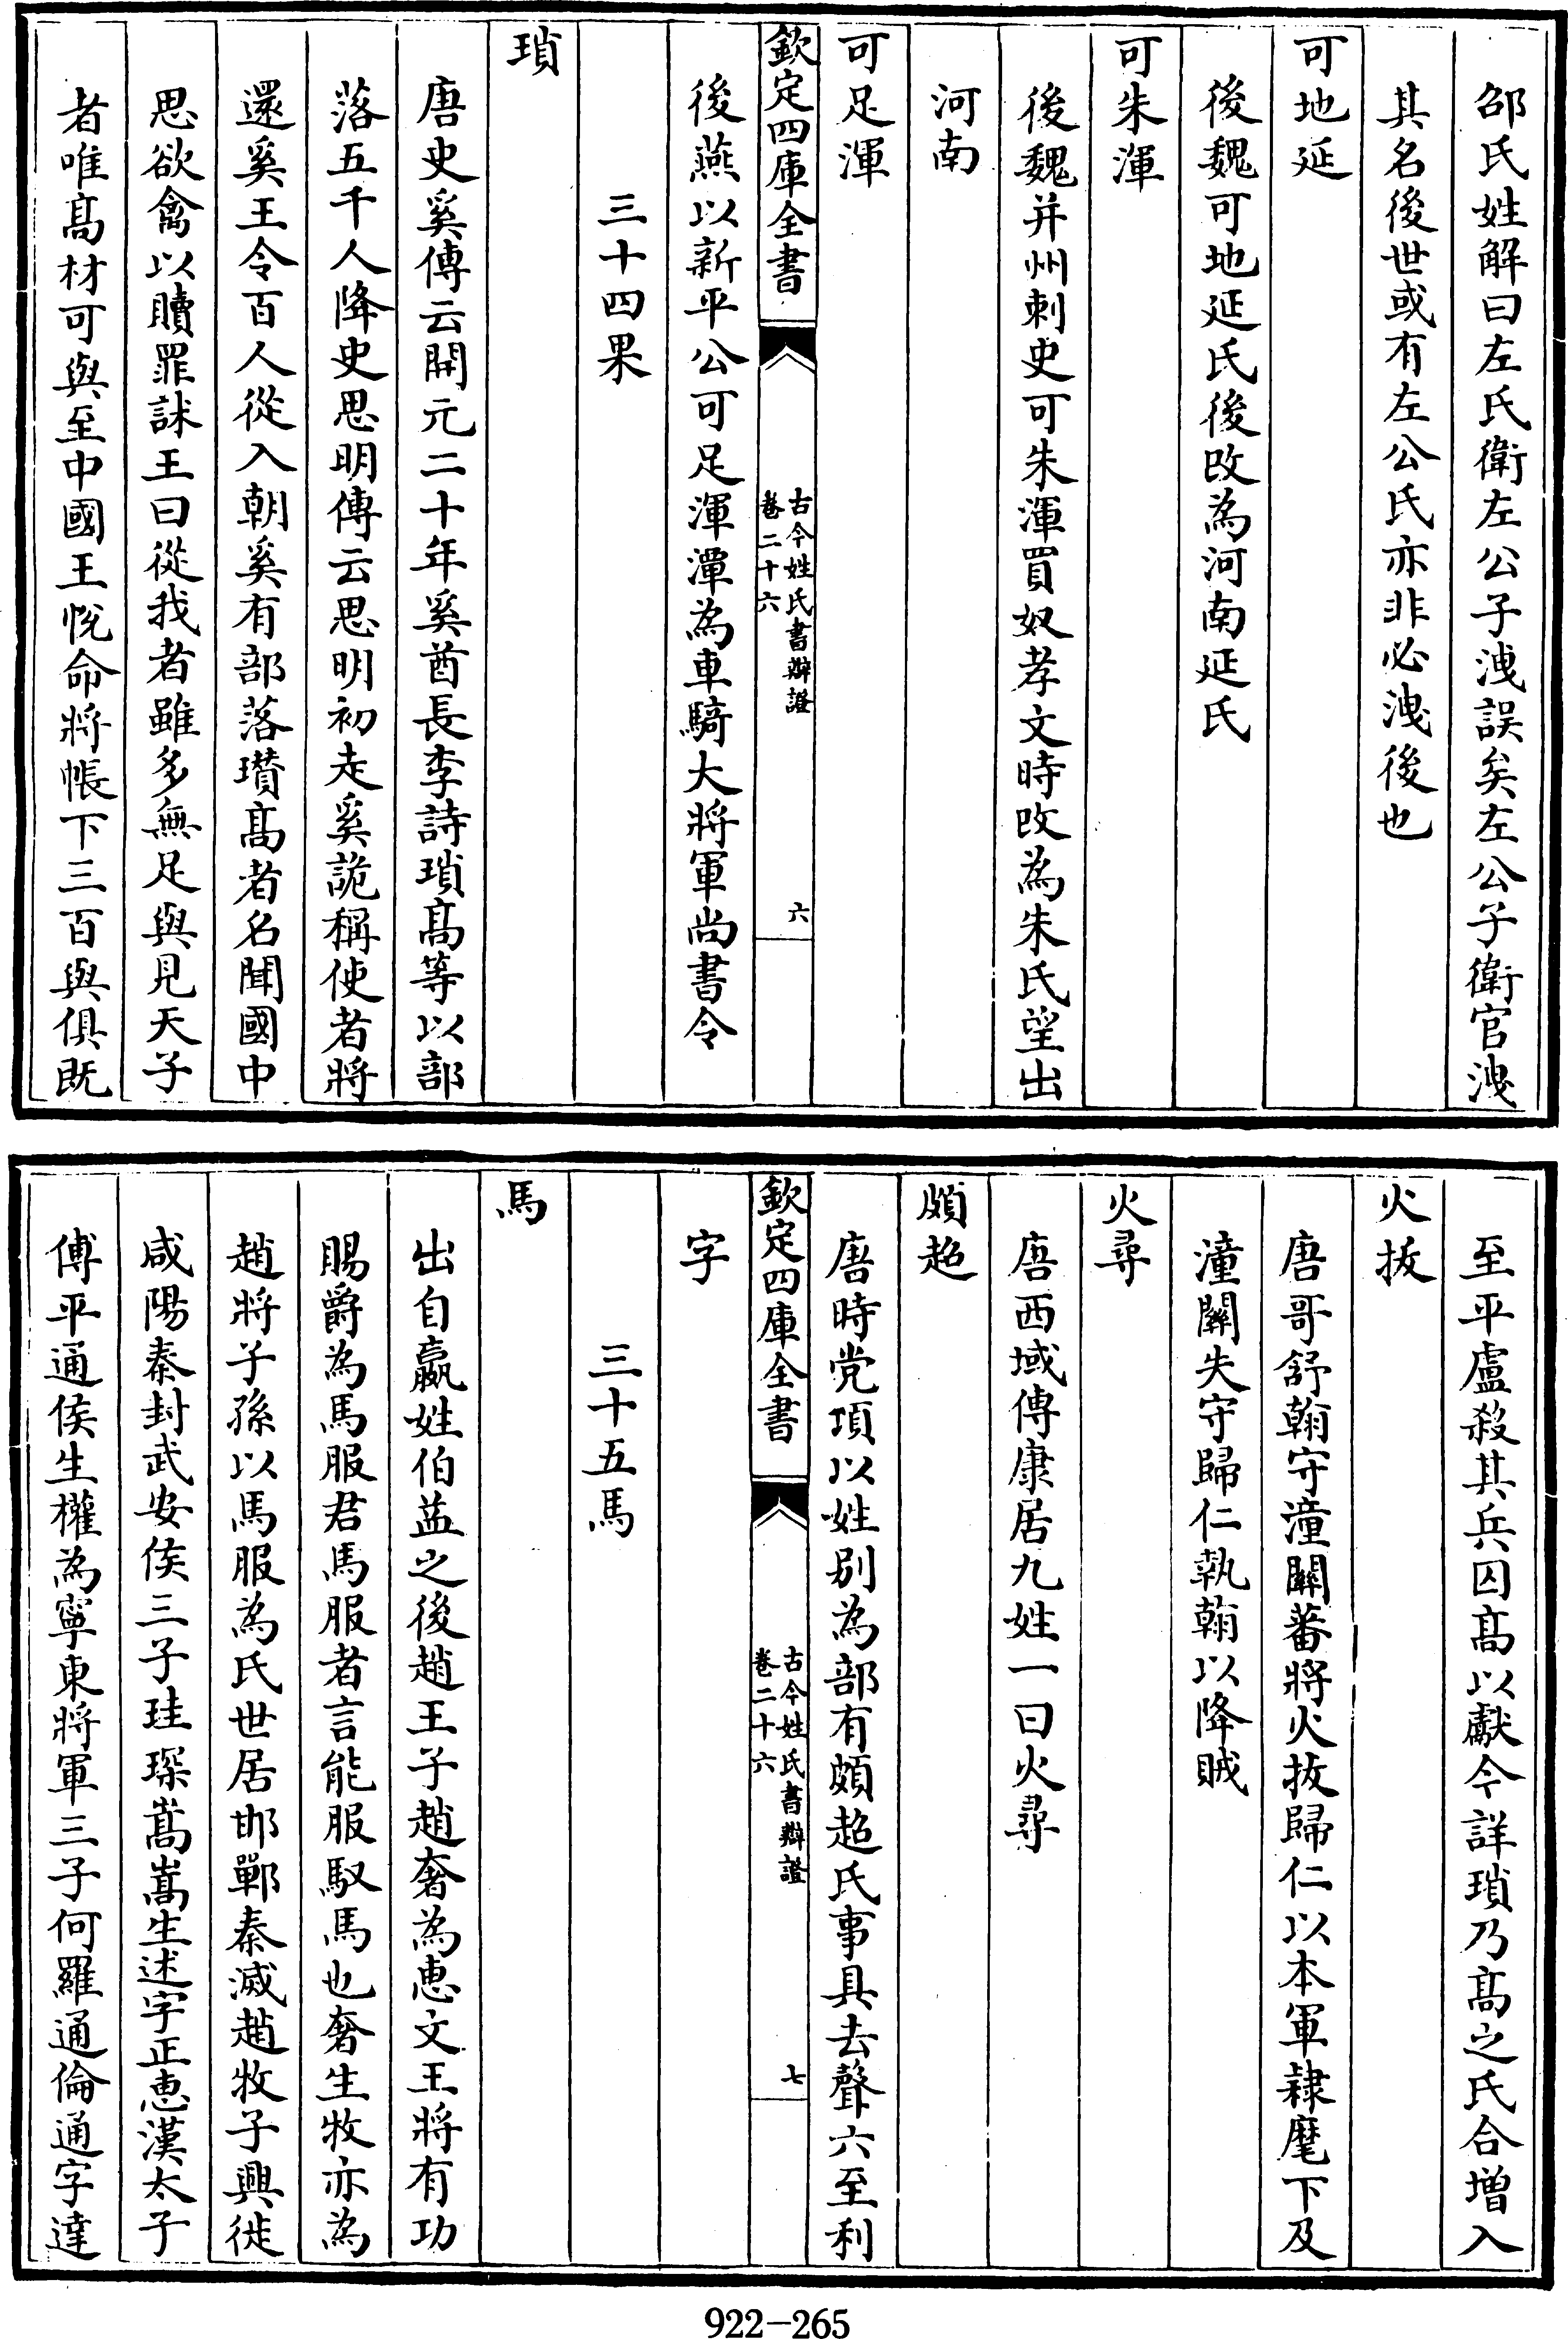 邵氏姓解曰左氏衛左公子洩誤矣左公子衛官洩
其名後世或有左公氏亦非必洩後也
可地延
後魏可地延氏後改為河南延氏
可朱渾
後魏并州刺史可朱渾買奴孝文時改為朱氏望出
河南
可足渾
欽定四庫全書
古今姓氏書辯證
卷二十六
六
後燕以新平公可足渾潭為車騎大將軍尚書令
三十四果
瑣
唐史奚傳云開元二十年奚酋長李詩瑣髙等以部
落五千人降史思明傳云思明初走奚詭稱使者將
還奚王令百人從入朝奚有部落瓚髙者名聞國中
思欲禽以贖罪訹王曰從我者雖多無足與見天子
者唯髙材可與至中國王悅命將帳下三百與俱既
至平盧殺其兵囚髙以獻今詳瑣乃髙之氏合增入
火拔
唐哥舒翰守潼關蕃將火拔歸仁以本軍隸麾下及
潼關失守歸仁執翰以降賊
火尋
唐西域傳康居九姓一曰火尋
頗超
唐時党項以姓别為部有頗超氏事具去聲六至利
欽定四庫全書
古今姓氏書辯證
卷二十六
七
字
三十五馬
馬
出自嬴姓伯益之後趙王子趙奢為惠文王將有功
賜爵為馬服君馬服者言能服馭馬也奢生牧亦為
趙將子孫以馬服為氏世居邯鄲秦滅趙牧子興徙
咸陽秦封武安侯三子珪琛嵩嵩生述字正惠漢太子
傅平通侯生權為寧東將軍三子何羅通倫通字達
922-265